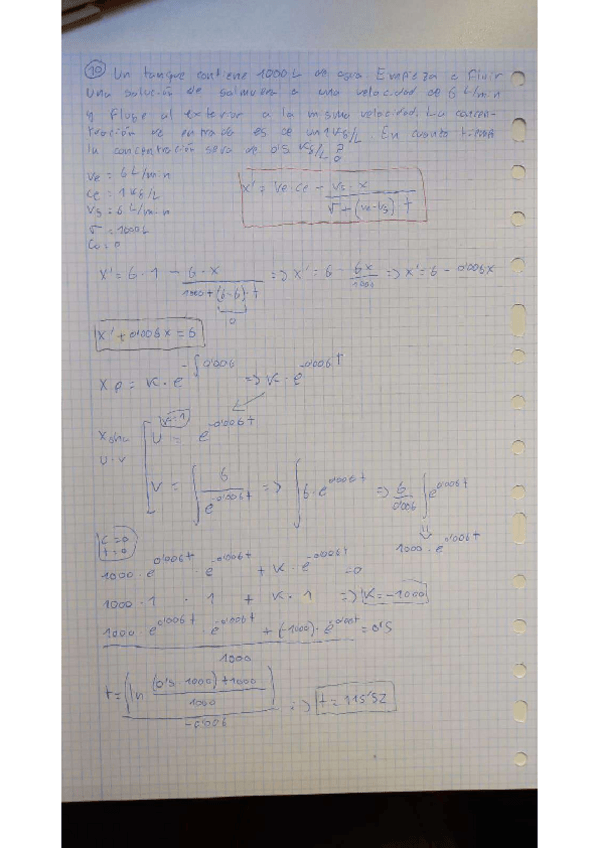 10 Un tanque contiene 1000 L de agua. Empieza a fluir
una solución de salmuera a una velocidad de 6 L/min
y fluye al exterior a la misma velocidad. La concen-
tración de entrada es de un 1 Kg/L. En cuanto tiempo
la concentración sera de 0'5 Kg/L?
Ve = 6 L/min
Ce = 1 Kg/L
Vs = 6 L/min
V = 1000 L
Co = 0
X' = Ve·Ce - Vs·X / V+(Ve-Vs)t
X' = 6·1 - 6·X / 1000+(6-6)·t => X' = 6 - 6X/1000 => X' = 6 - 0'006X
0
X' + 0'006X = 6
Xp = K·e^-∫0'006 => K·e^-0'006t
K=1
U = e^-0'006t
U·V
V = ∫ 6/e^-0'006t => ∫6·e^0'006t => 6/0'006 ∫e^0'006t
1000·e^0'006t
C=0
t=0
1000·e^0'006t · e^-0'006t + K·e^-0'006t = 0
1000·1 · 1 + K·1 => K = -1000
1000·e^0'006t · e^-0'006t + (-1000)· = 0'5
1000
t = (ln (0'5·1000)+1000 / 1000) / -0'006 => t = 115'52